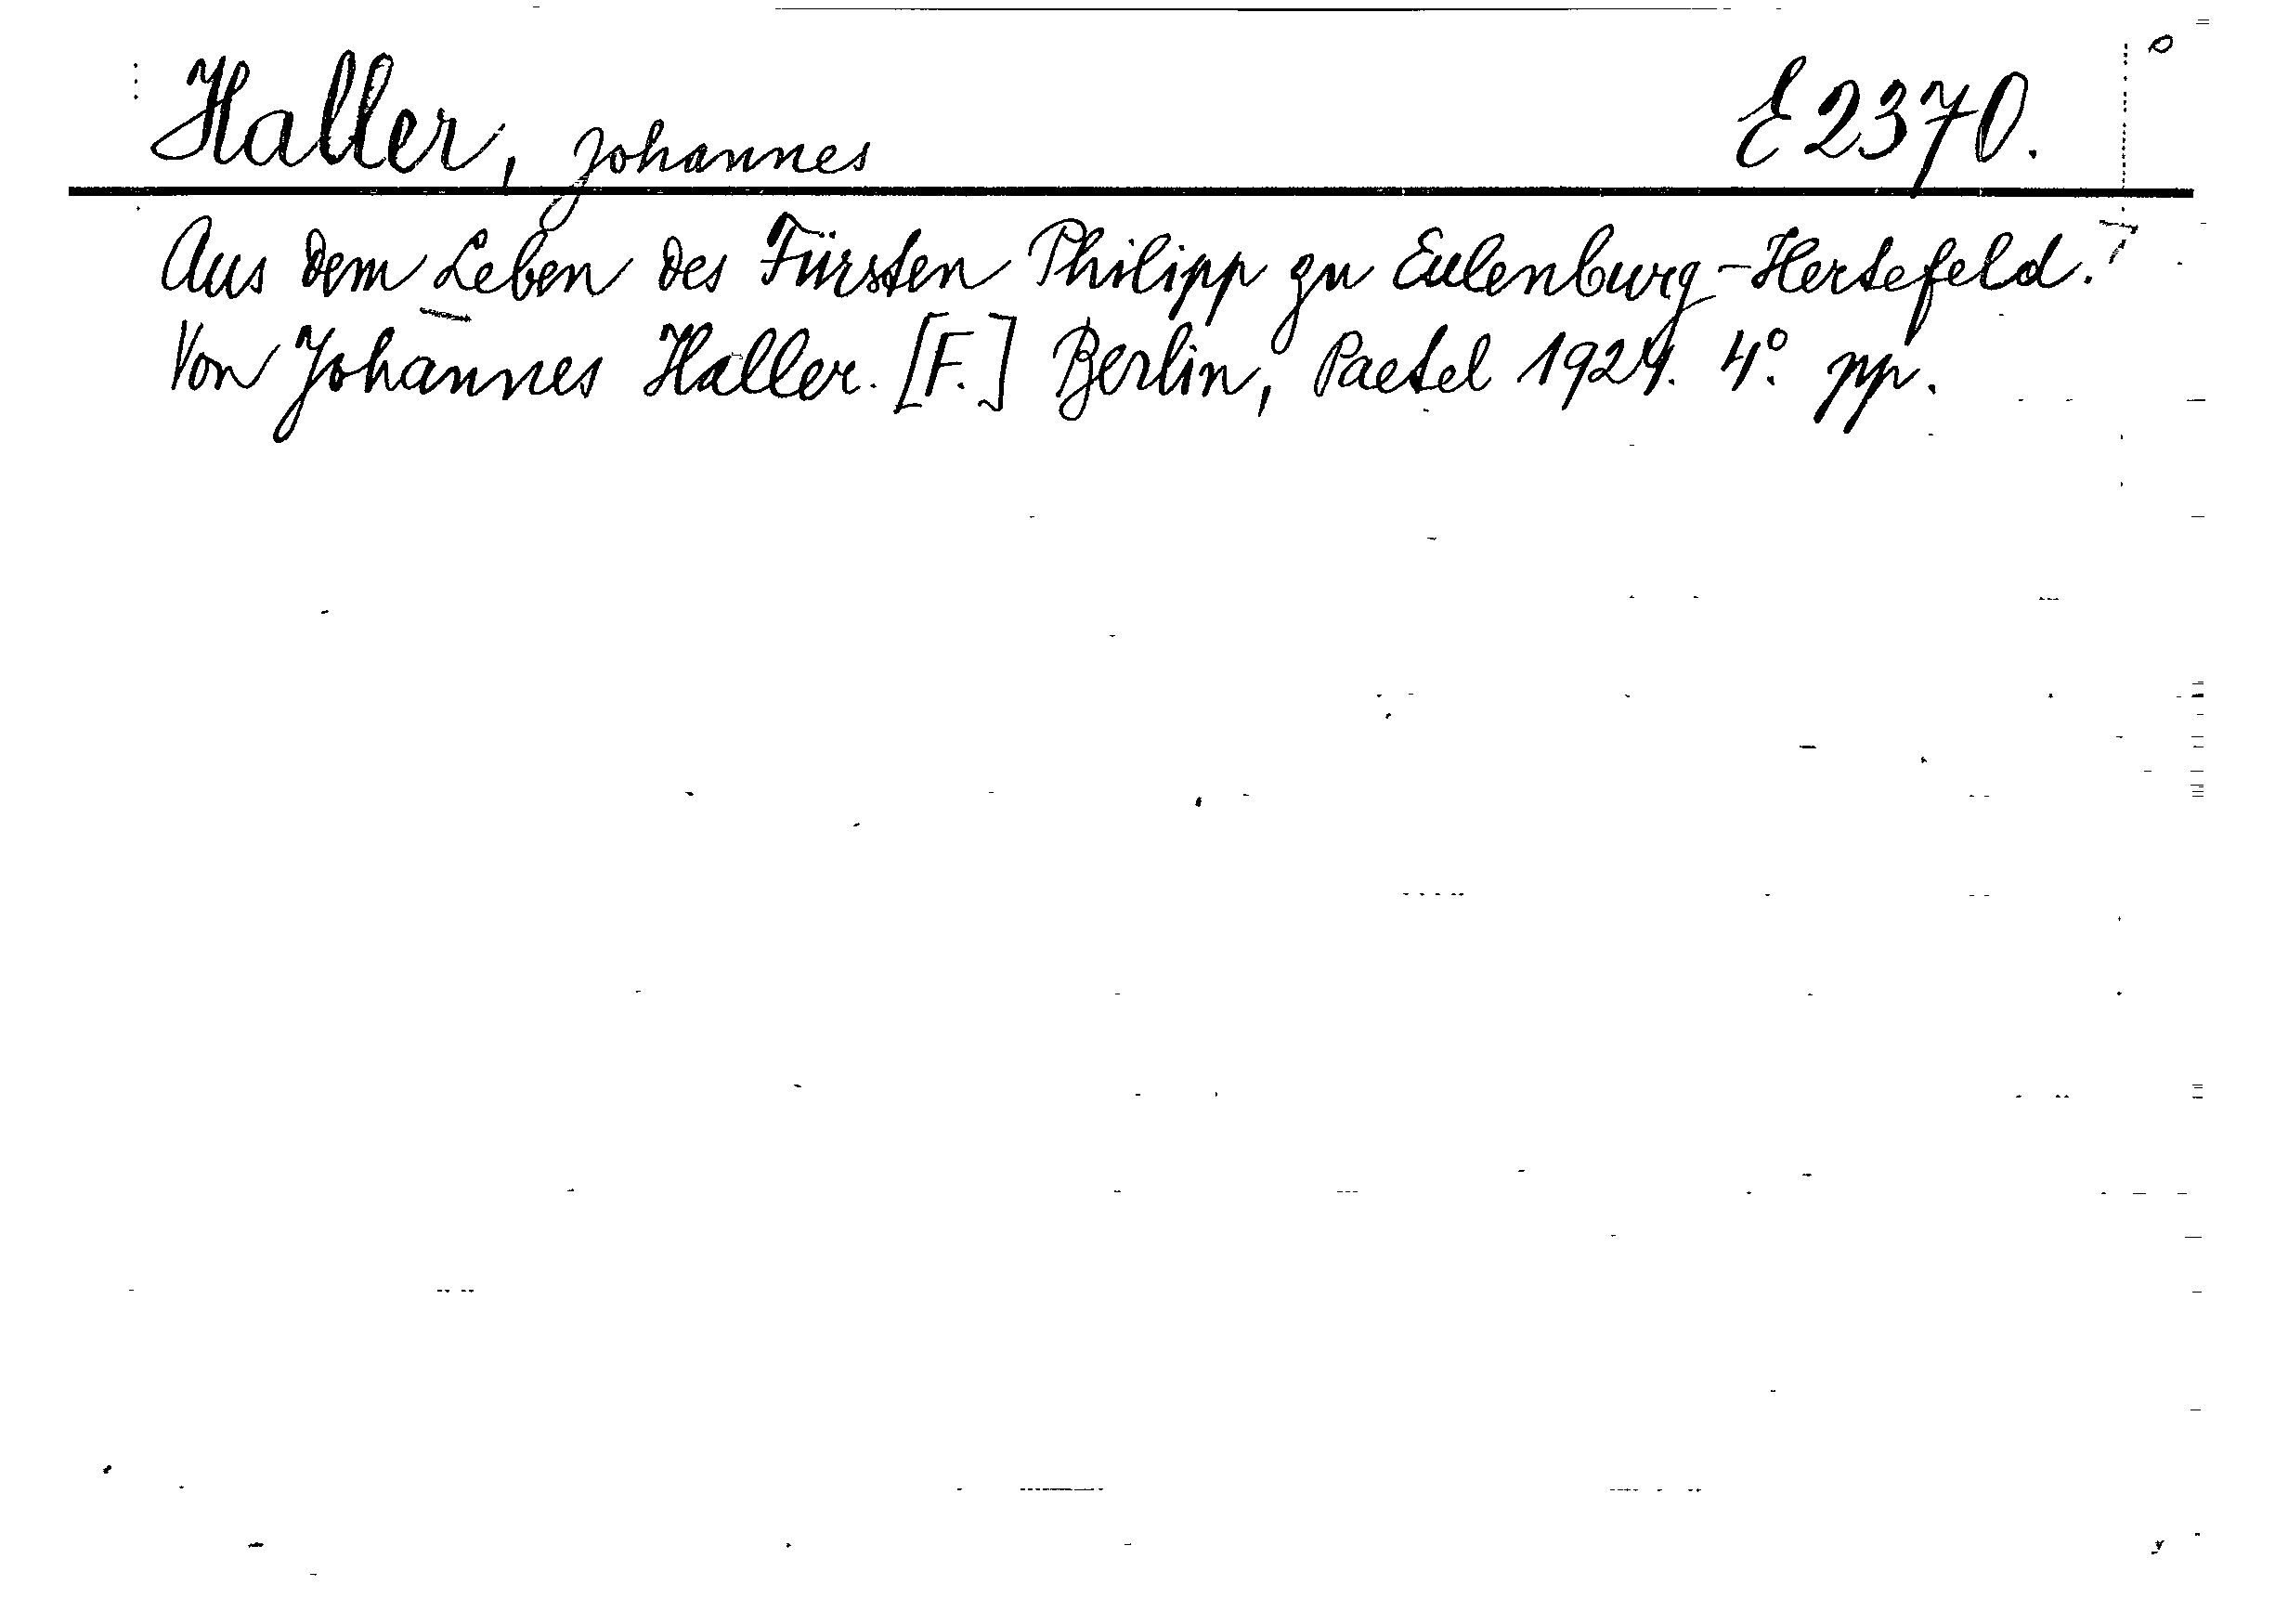 Haller, Johannes E 2370.
Aus dem Leben des Fürsten Philipp zu Eulenburg-Hertefeld.
Von Johannes Haller. [F.] Berlin, Paetel 1924. 4° pp.